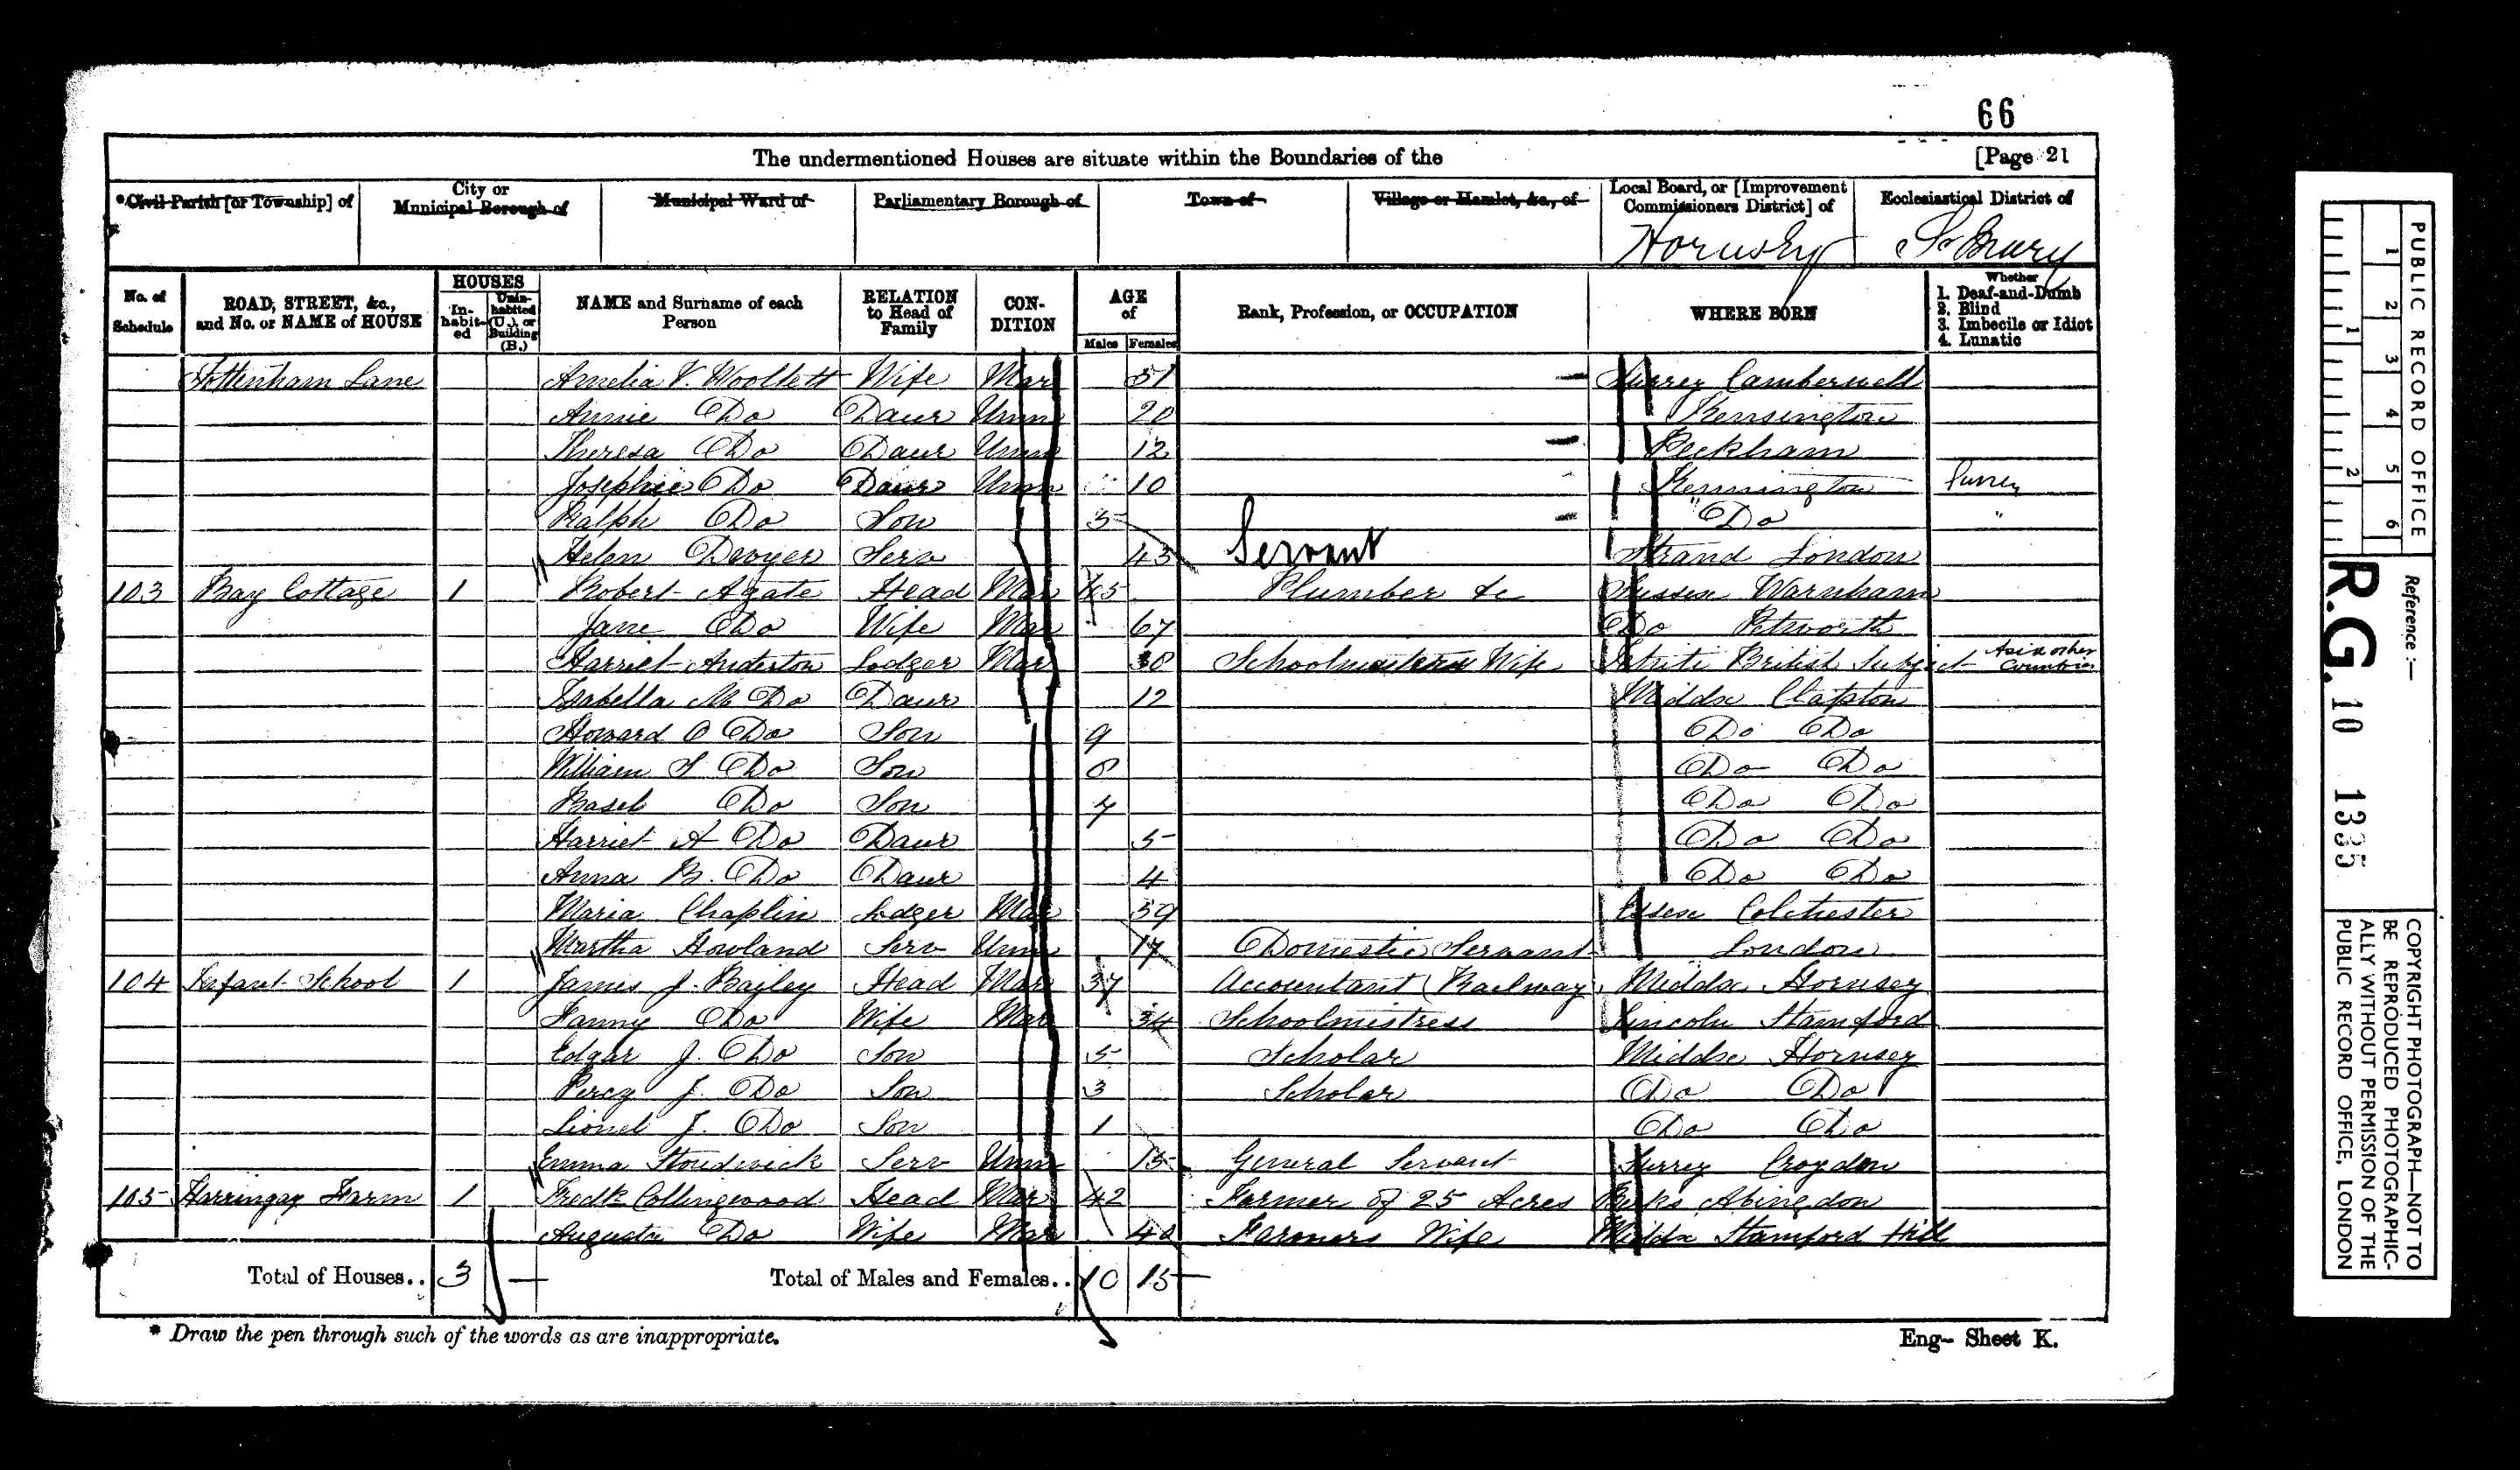 66
The undermentioned Houses are situate within the Boundaries of the [Page 21
*Civil Parish [or Township] of City or Municipal Borough of Municipal Ward of Parliamentary Borough of Town of Village or Hamlet, &c., of Local Board, or [Improvement Commissioners District] of Ecclesiastical District of
Hornsey St Mary
No. of Schedule ROAD, STREET, &c., and No. or NAME of HOUSE HOUSES In-habit-ed Unin-habited (U.), or Building (B.) NAME and Surname of each Person RELATION to Head of Family CON-DITION AGE of Males Females Rank, Profession, or OCCUPATION WHERE BORN Whether 1. Deaf-and-Dumb 2. Blind 3. Imbecile or Idiot 4. Lunatic
Tottenham Lane Amelia V. Woollett Wife Mar 51 Surrey Camberwell
Annie Do Daur Unm 20 Kensington
Theresa Do Daur Unm 12 Peckham
Josephine Do Daur Unm 10 Kennington Surrey
Ralph Do Son 5 Do "
Helen Dwyer Serv 43 Servant Strand London
103 Bay Cottage 1 Robert Agate Head Mar 65 Plumber &c Sussex Warnham
Jane Do Wife Mar 67 Do Petworth
Harriet Anderton Lodger Mar 38 Schoolmasters Wife British Subject Asia other Countries
Isabella M Do Daur 12 Middx Clapton
Howard O Do Son 9 Do Do
William S Do Son 8 Do Do
Basel Do Son 7 Do Do
Harriet A Do Daur 5 Do Do
Anna B. Do Daur 4 Do Do
Maria Chaplin Lodger Mar 59 Essex Colchester
Martha Howland Serv Unm 17 Domestic Servant London
104 Infant School 1 James J. Bayley Head Mar 37 Accountant (Railway) Middx Hornsey
Fanny Do Wife Mar 34 Schoolmistress Lincoln Stamford
Edgar J. Do Son 5 Scholar Middx Hornsey
Percy J. Do Son 3 Scholar Do Do
Lionel J. Do Son 1 Do Do
Emma Serv Unm 15 General Servant Surrey Croydon
105 Harringay Farm 1 Fredk Collingwood Head Mar 42 Farmer of 25 Acres Berks Abingdon
Augusta Do Wife Mar 40 Farmers Wife Middx Stamford Hill
Total of Houses.. 3 — Total of Males and Females.. 10 15
* Draw the pen through such of the words as are inappropriate.
Eng— Sheet K.
PUBLIC RECORD OFFICE
1 2 3 4 5 6
1 2
Reference :—
R.G. 10 1335
COPYRIGHT PHOTOGRAPH—NOT TO
BE REPRODUCED PHOTOGRAPHIC-
ALLY WITHOUT PERMISSION OF THE
PUBLIC RECORD OFFICE, LONDON